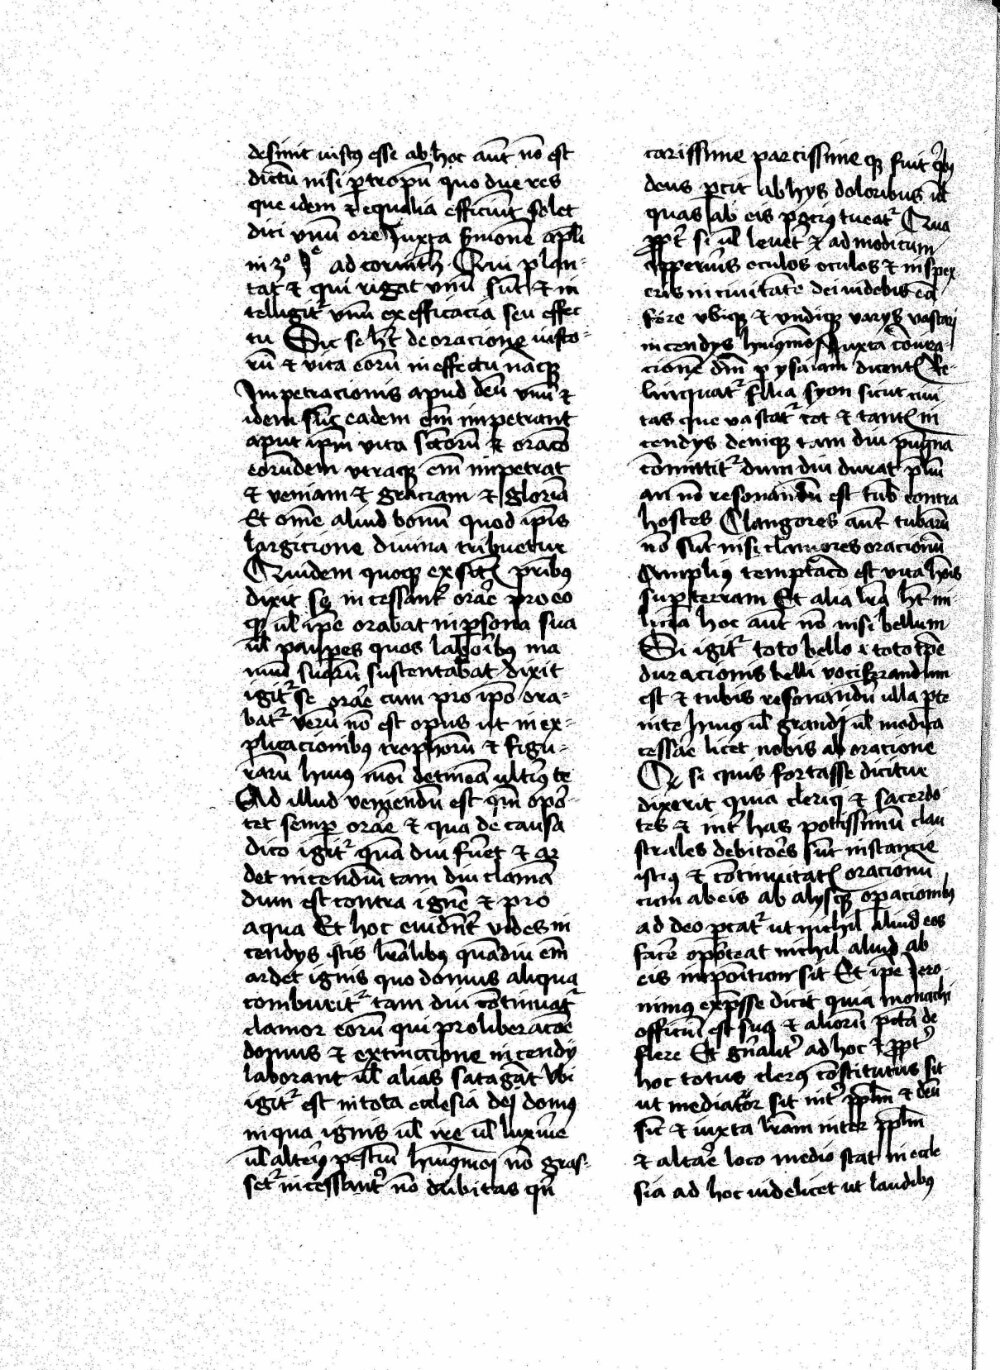 desinit iustus esse ab hoc aūt nō est
dictū nisi ꝑ tropū quo due res
que idem ⁊ equalia efficiūt solet
dici vnū ore Iuxta s̄monē apl̓i
in ad corinth̄ Qui plan-
tat ⁊ qui rigat vnū sūt ⁊ in
telligit᷑ vnū ex efficacia seu effec
tu Sic se hꝫ de oracione iusto-
rū ⁊ vita eorū in effectu nāqꝫ
Impetracionis apud deū vnū ⁊
idem sūt eadem em̄ impetrant
aput ip̄m vita sc̄torū ⁊ oraco
eorūdem vtraqꝫ em̄ impetrat
⁊ veniam ⁊ graciam ⁊ gloriā
Et om̄e aliud bonū quod ip̄is
largicione diuina tribuetur
Quidem quoqꝫ ex sc̄tis pr̄ibꝰ
dixit se incessant᷑ orar̄e pro eo
qꝫ ul̄ ip̄e orabat in ꝑsona sua
ul̄ pauꝑes quos laboribus ma
nuū suarū sustentabat dixit
igit᷑ se orar̄e cum pro ip̄o ora-
bat᷑ verū nō est opus ut in ex-
plicacionibꝰ trophorū ⁊ figu-
rarū huiꝰ mōi detinēa ultiꝰ te
Ad illud veniendū est qm̄ opo-
tet semꝑ orar̄e ⁊ qua de causa
dico igit᷑ quā diu fūet ⁊ ar
det incendiū tam diu clamā
dum est contra ignē ⁊ pro
aqua Et hoc euidēt᷑ vides in
cendys istis lr̄alibus quādiu em̄
ardet ignis quo domus aliqua
comburit᷑ tam diu cōtinuat᷑
clamor eorū qui pro liberacōe
domus ⁊ extinccione incendy
laborant ul̄ alias satagāt Vbi
igit᷑ est in tota ecclesia dei domꝰ
in qua ignis ul̄ ire ul̄ luxurie
ul̄ alteriꝰ pestiū huiꝰmōi nō gras-
set᷑ incessant᷑ nō dubitas qn̄
carissime parcissime qꝫ fuit qb̓ꝫ
deus ꝑcit ab hys doloribus ul̄
quas ab eis pociꝰ tueat᷑ Qua
ꝓpt᷑ si ul̄ leuet᷑ ⁊ ad modicum
apperuis oculos oculos ⁊ inspex
eris in ciuitate dei videbis eā
fore vbiqꝫ ⁊ vndiqꝫ varys vastari
incendys huiꝰmōi Iuxta cōmea-
cionē dn̄i ꝑ ysaiam dicentꝭ Re-
linquat᷑ filia syon sicut ciui
tas que vastat᷑ tot ⁊ tantꝭ in
cendys deniqꝫ tam diu pugna
cōmittit᷑ dum diu durat p̄liū
an nō resonandū est tub̄ contra
hostes Clangores aūt tubarū
nō sūt nisi clamores oracionū
Ampliꝰ temptacō est vita hōis
suꝑ terram Et alia lr̄a hꝫ mi-
licia hoc aūt nō nisi bellum
Si igit᷑ toto bello ⁊ toto tp̄e
duracionis belli vociferandum
est ⁊ tubis resonandū ulla ꝑte
uite huiꝰ ul̄ grandi ul̄ modica
cessar̄e licet nobis ab oracione
Qꝫ si quis fortasse dicitur
dixerit quia clerici ⁊ sacerdo
tes ⁊ int᷑ has potissimū clau
strales debitores sūt instancie
istiꝰ ⁊ cōtinuitatꝭ oracionū
cum ab eis ab alysqꝫ oꝑacionibꝰ
ad deo ꝑcat᷑ ut nichil aliud eos
facer̄e oporteat nichil aliud ab
eis inpositum sit Et ip̄e Iero
nimus exp̄sse dicit quia monachi
officiū est sua ⁊ aliorū pctā de
flere Et gn̄alit᷑ ad hoc ⁊ ꝓpt᷑
hoc totus clerꝰ cōstitutus sit
ut mediator sit int᷑ pplm̄ ⁊ deū
sic̄ ⁊ iuxta lr̄am inter pplm̄
⁊ altar̄e loco medio stat in eccle
sia ad hoc videlicet ut laudibꝰ